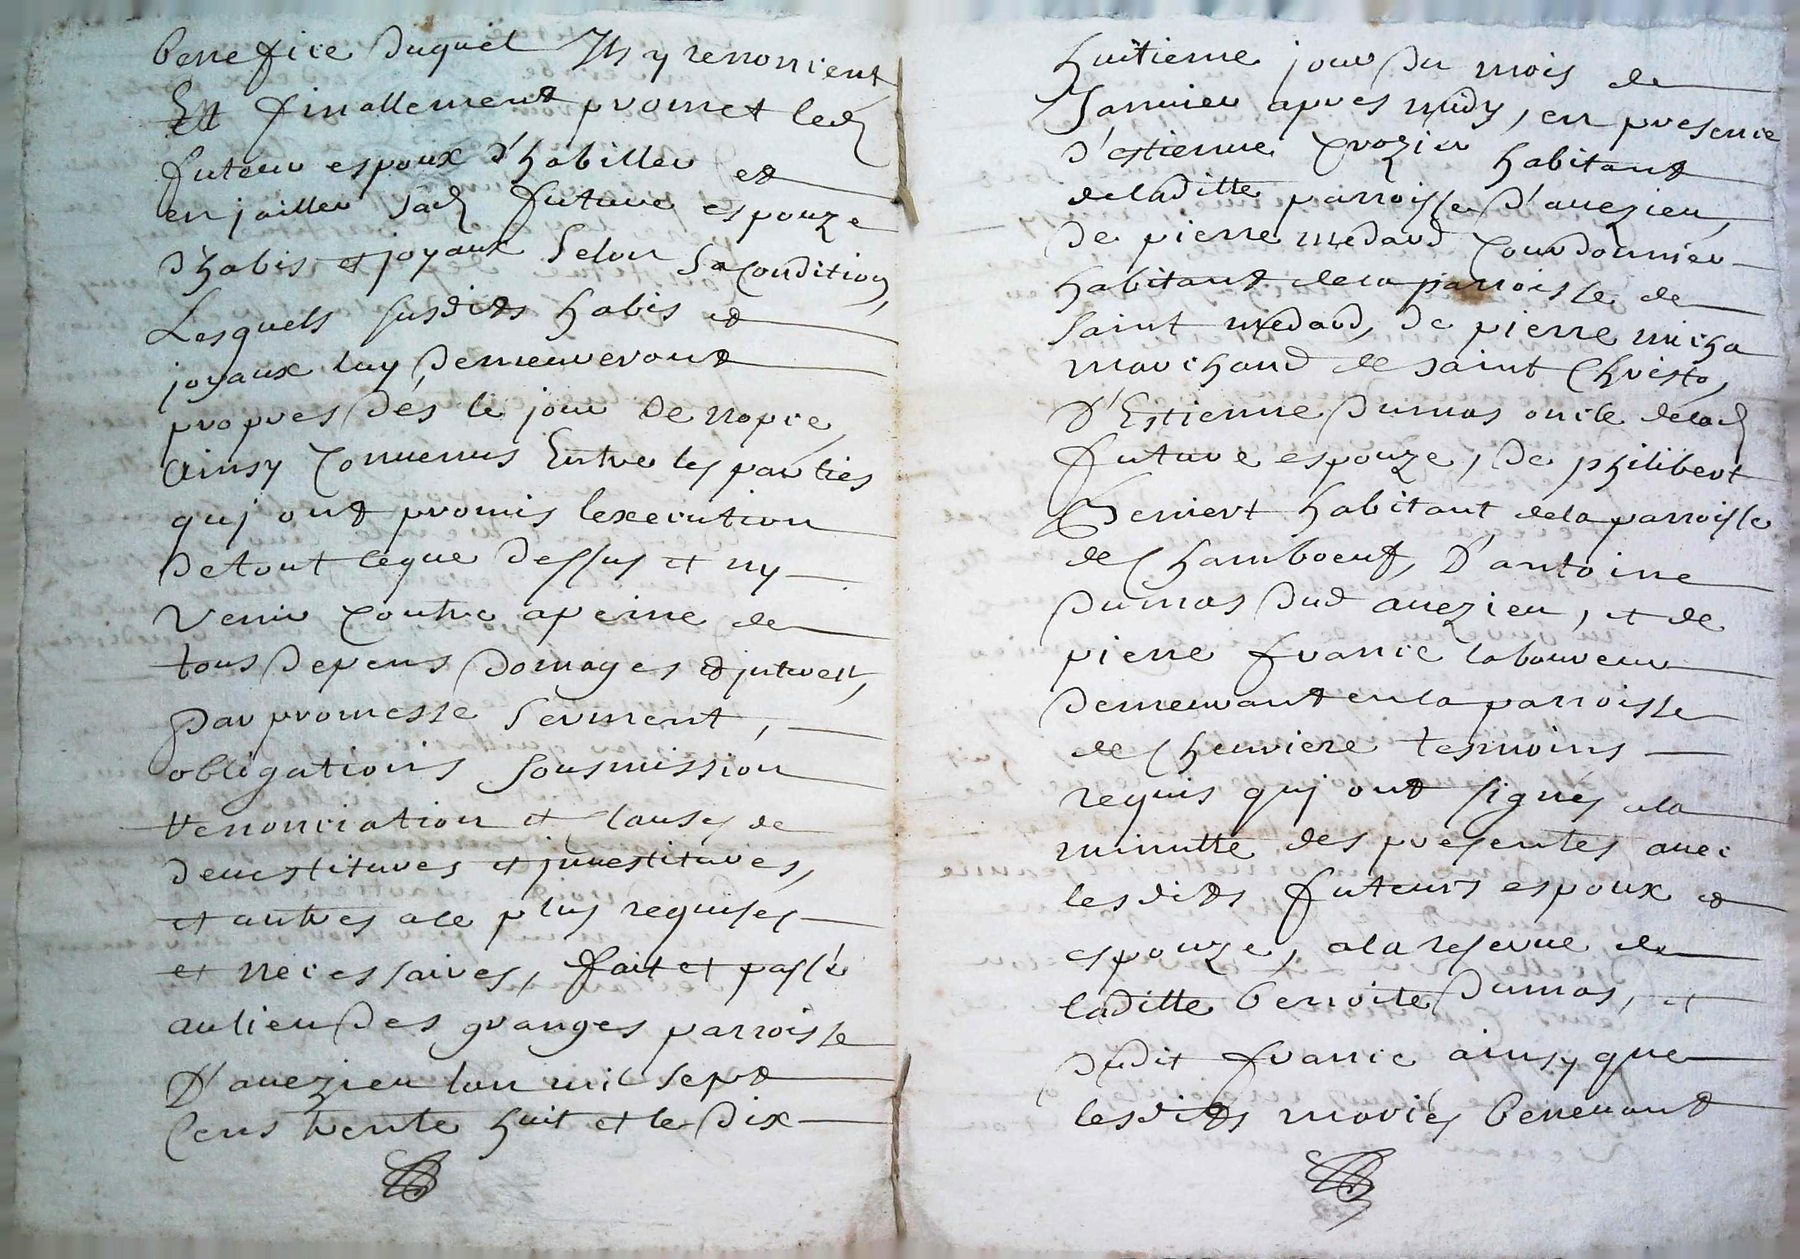 benefice duquel Ils y renoncient
Et finallement promet led
futeur espoux d'habiller et
enjailler sad future espouze
d'habis et joyaux selon sa condition,
Lesquels susdits habis et
joyaux luy demeureront
propres dés le jour de nopce,
Ainsy convenus Entre les parties
quj ont promis lexecution
de tout ceque dessus et ny
venir contre apeine de
tous depens domages et jnterest,
par promesse serment,
obligations sousmission
renonciation et clauses de
devestitures et jnvestitures,
et autres ace plus requises
et necessaires, fait et passé
au lieu des granges parroisse
D'avezieu lan mil sept
Cens trente huit et le dix
huitieme jour du mois de
Janvier apres midy, en presence
d'estienne crozier habitant
deladitte parroisse d'avezieu,
de pierre medard courdonnier
habitant dela parroisse de
saint medard, de pierre micha
marchand de saint Christo,
D'Estienne dumas oncle delad
future espouze, de philibert
Beniert habitant dela parroisse
de Chamboeuf, D'antoine
dumas dud avezieu, et de
pierre franc laboureur
demeurant en la parroisse
de Cheuviere tesmoins
requis quj ont signés ala
minutte des presentes avec
lesdits futeurs espoux et
espouze, ala reserve de
laditte benoite dumas, et
dudit franc ainsy que
lesdits mariés benevant